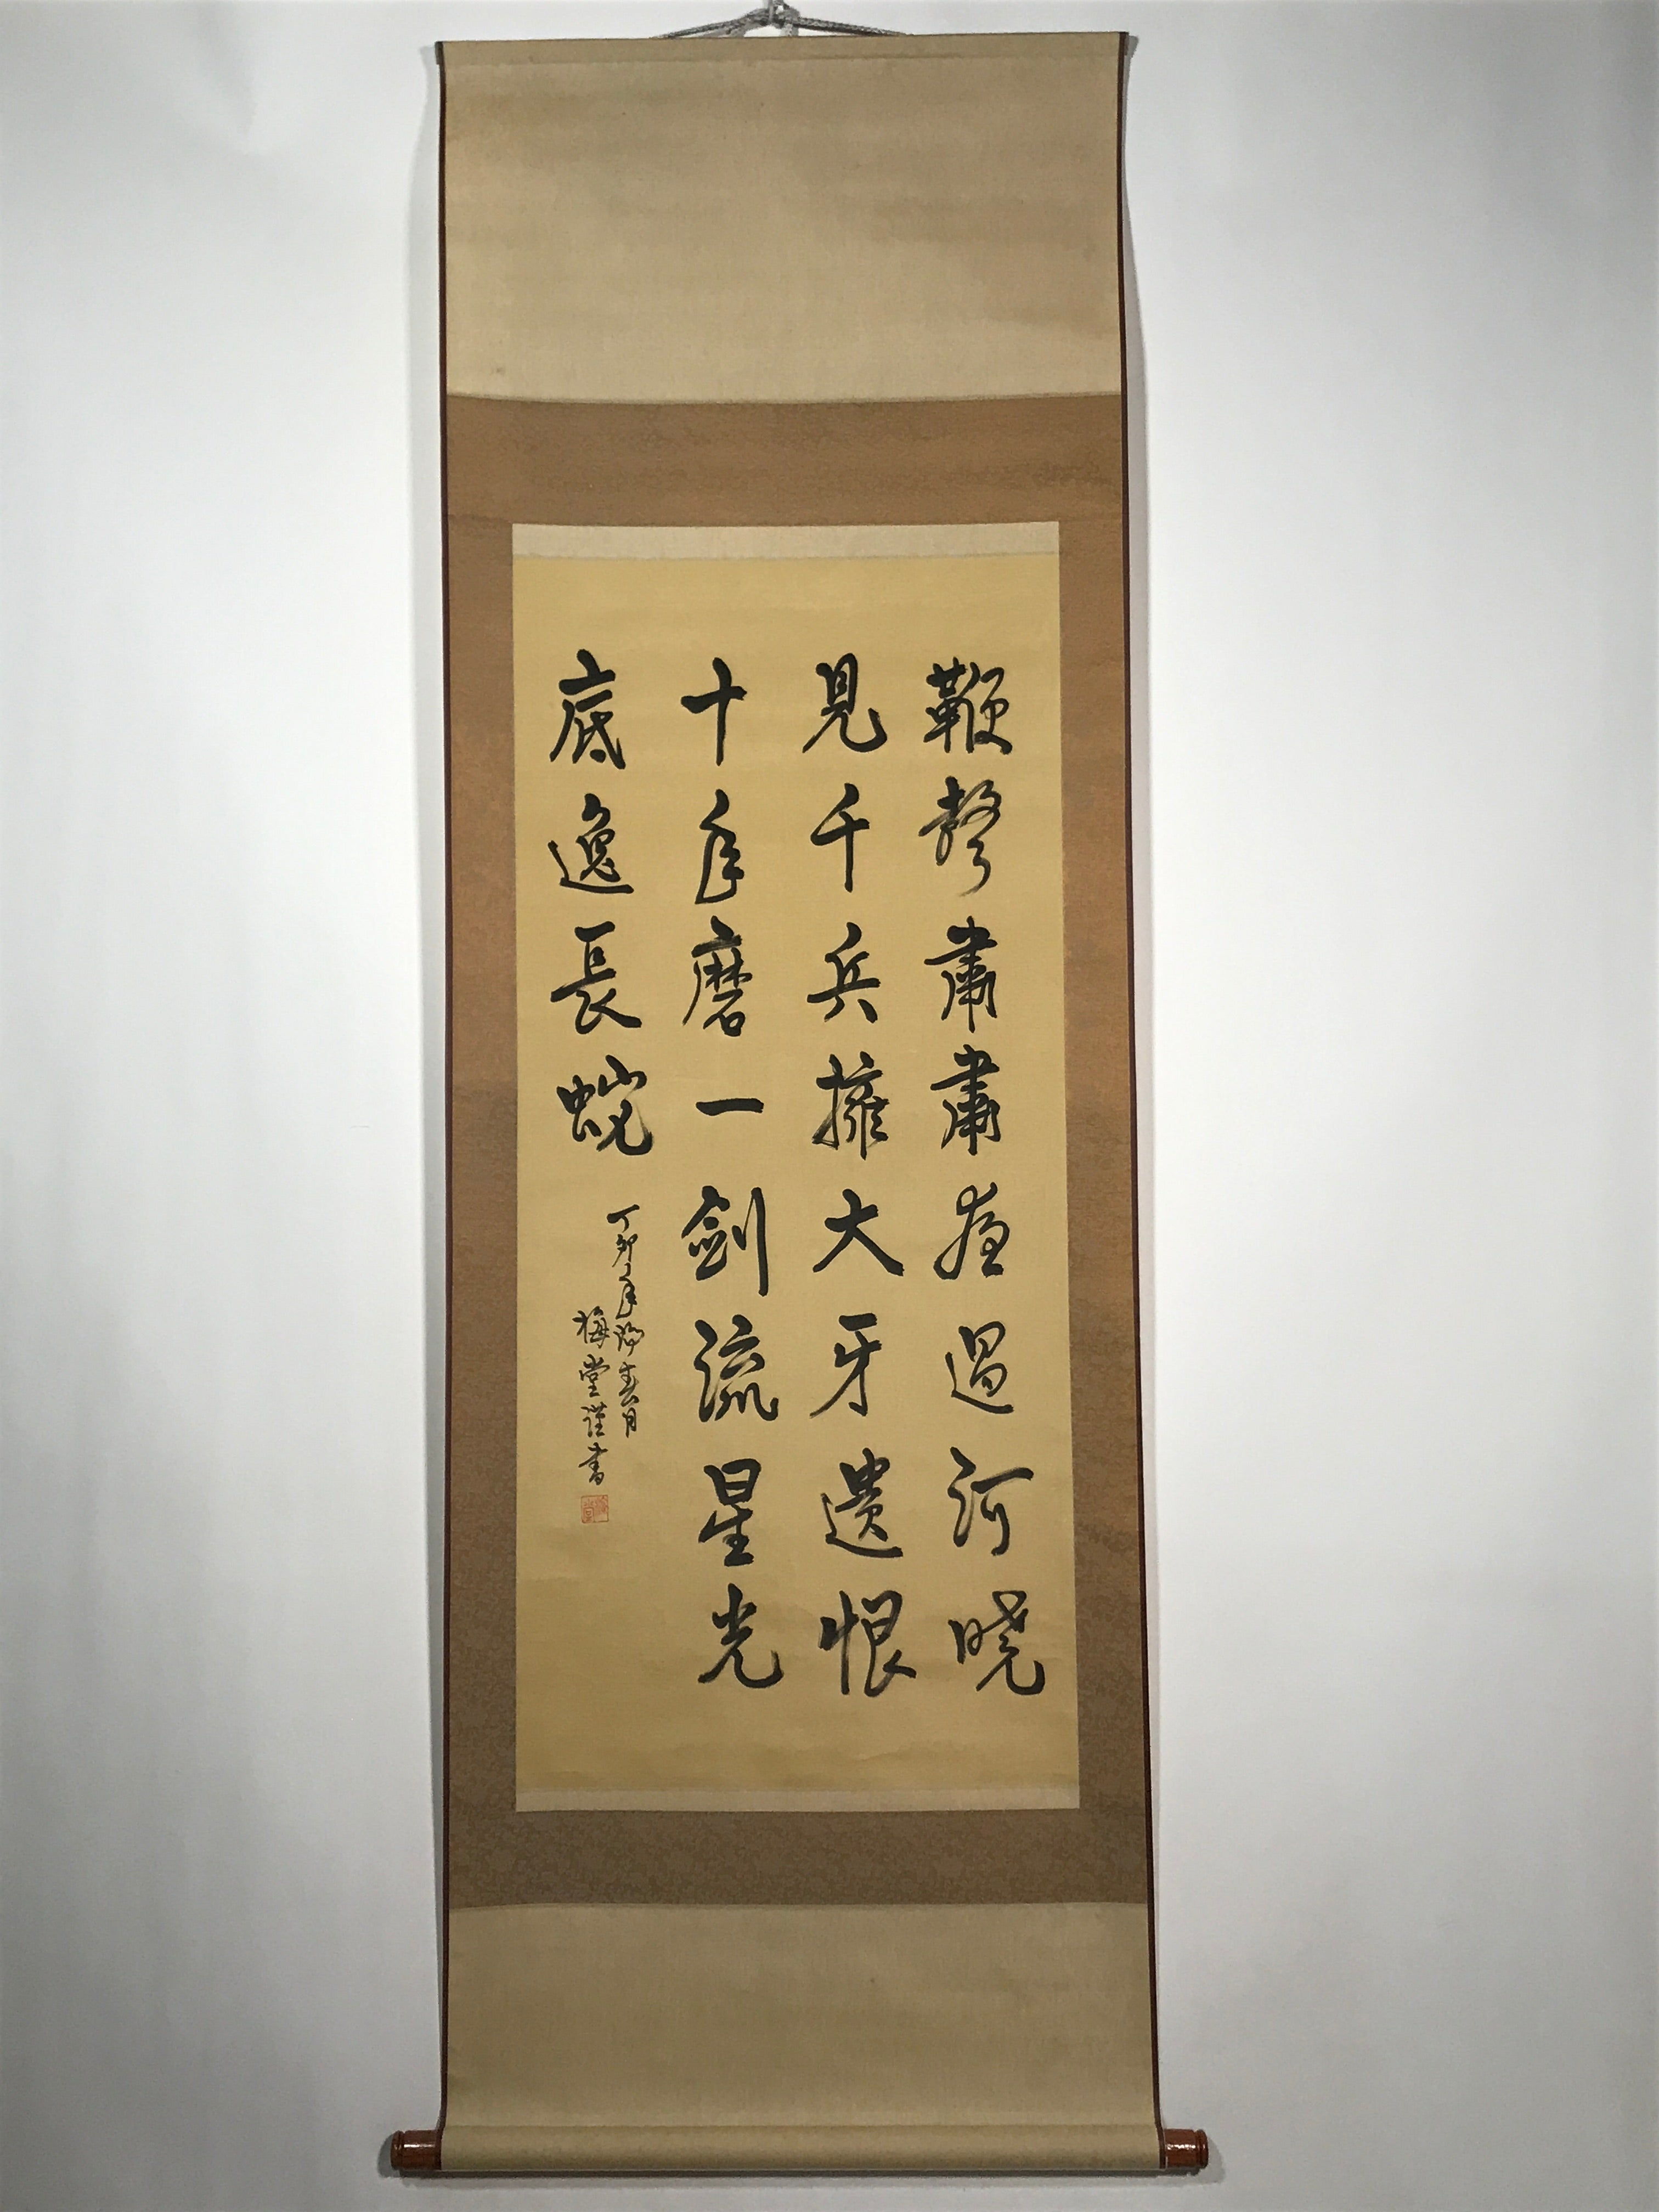 鞭聲肅肅夜過河曉
見千兵擁大牙遺恨
十年磨一劍流星光
底逸長蛇
丁卯年陽春月
梅堂謹書